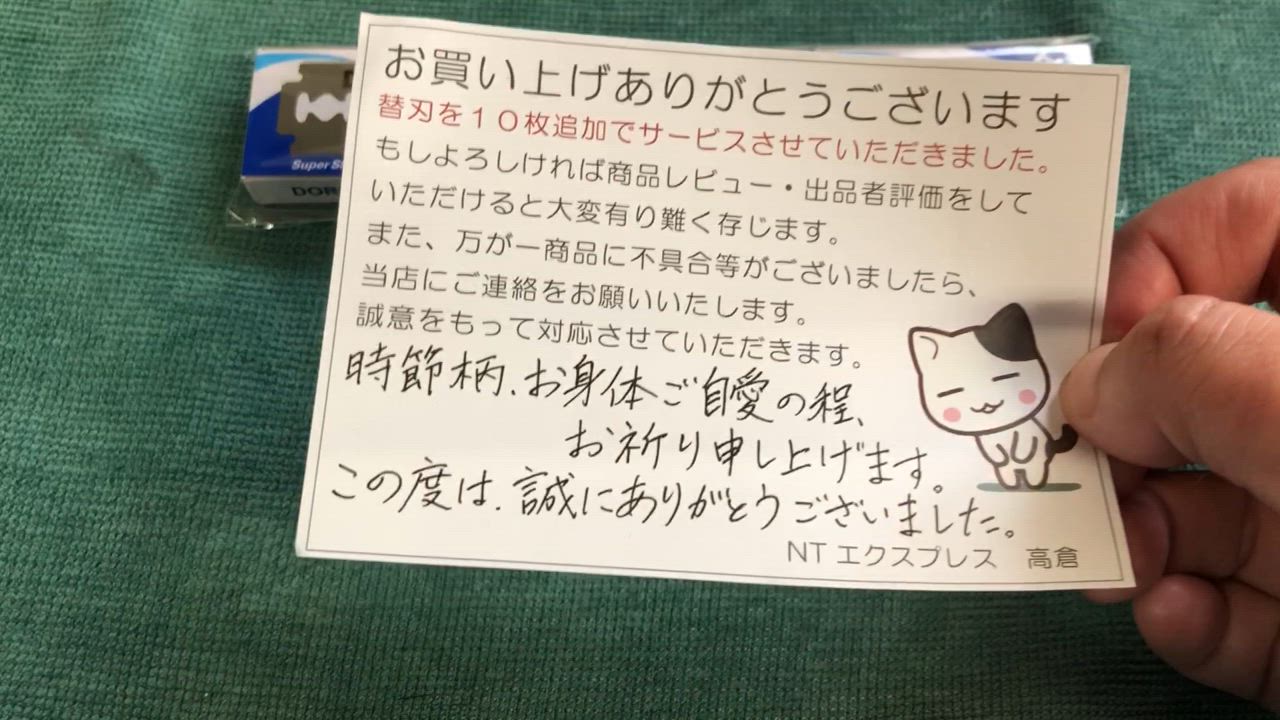 お買い上げありがとうございます
替刃を１０枚追加でサービスさせていただきました。
もしよろしければ商品レビュー・出品者評価をして
いただけると大変有り難く存じます。
また、万が一商品に不具合等がございましたら、
当店にご連絡をお願いいたします。
誠意をもって対応させていただきます。
時節柄、お身体ご自愛の程、
お祈り申し上げます。
この度は、誠にありがとうございました。
NTエクスプレス　高倉
Super
DOR